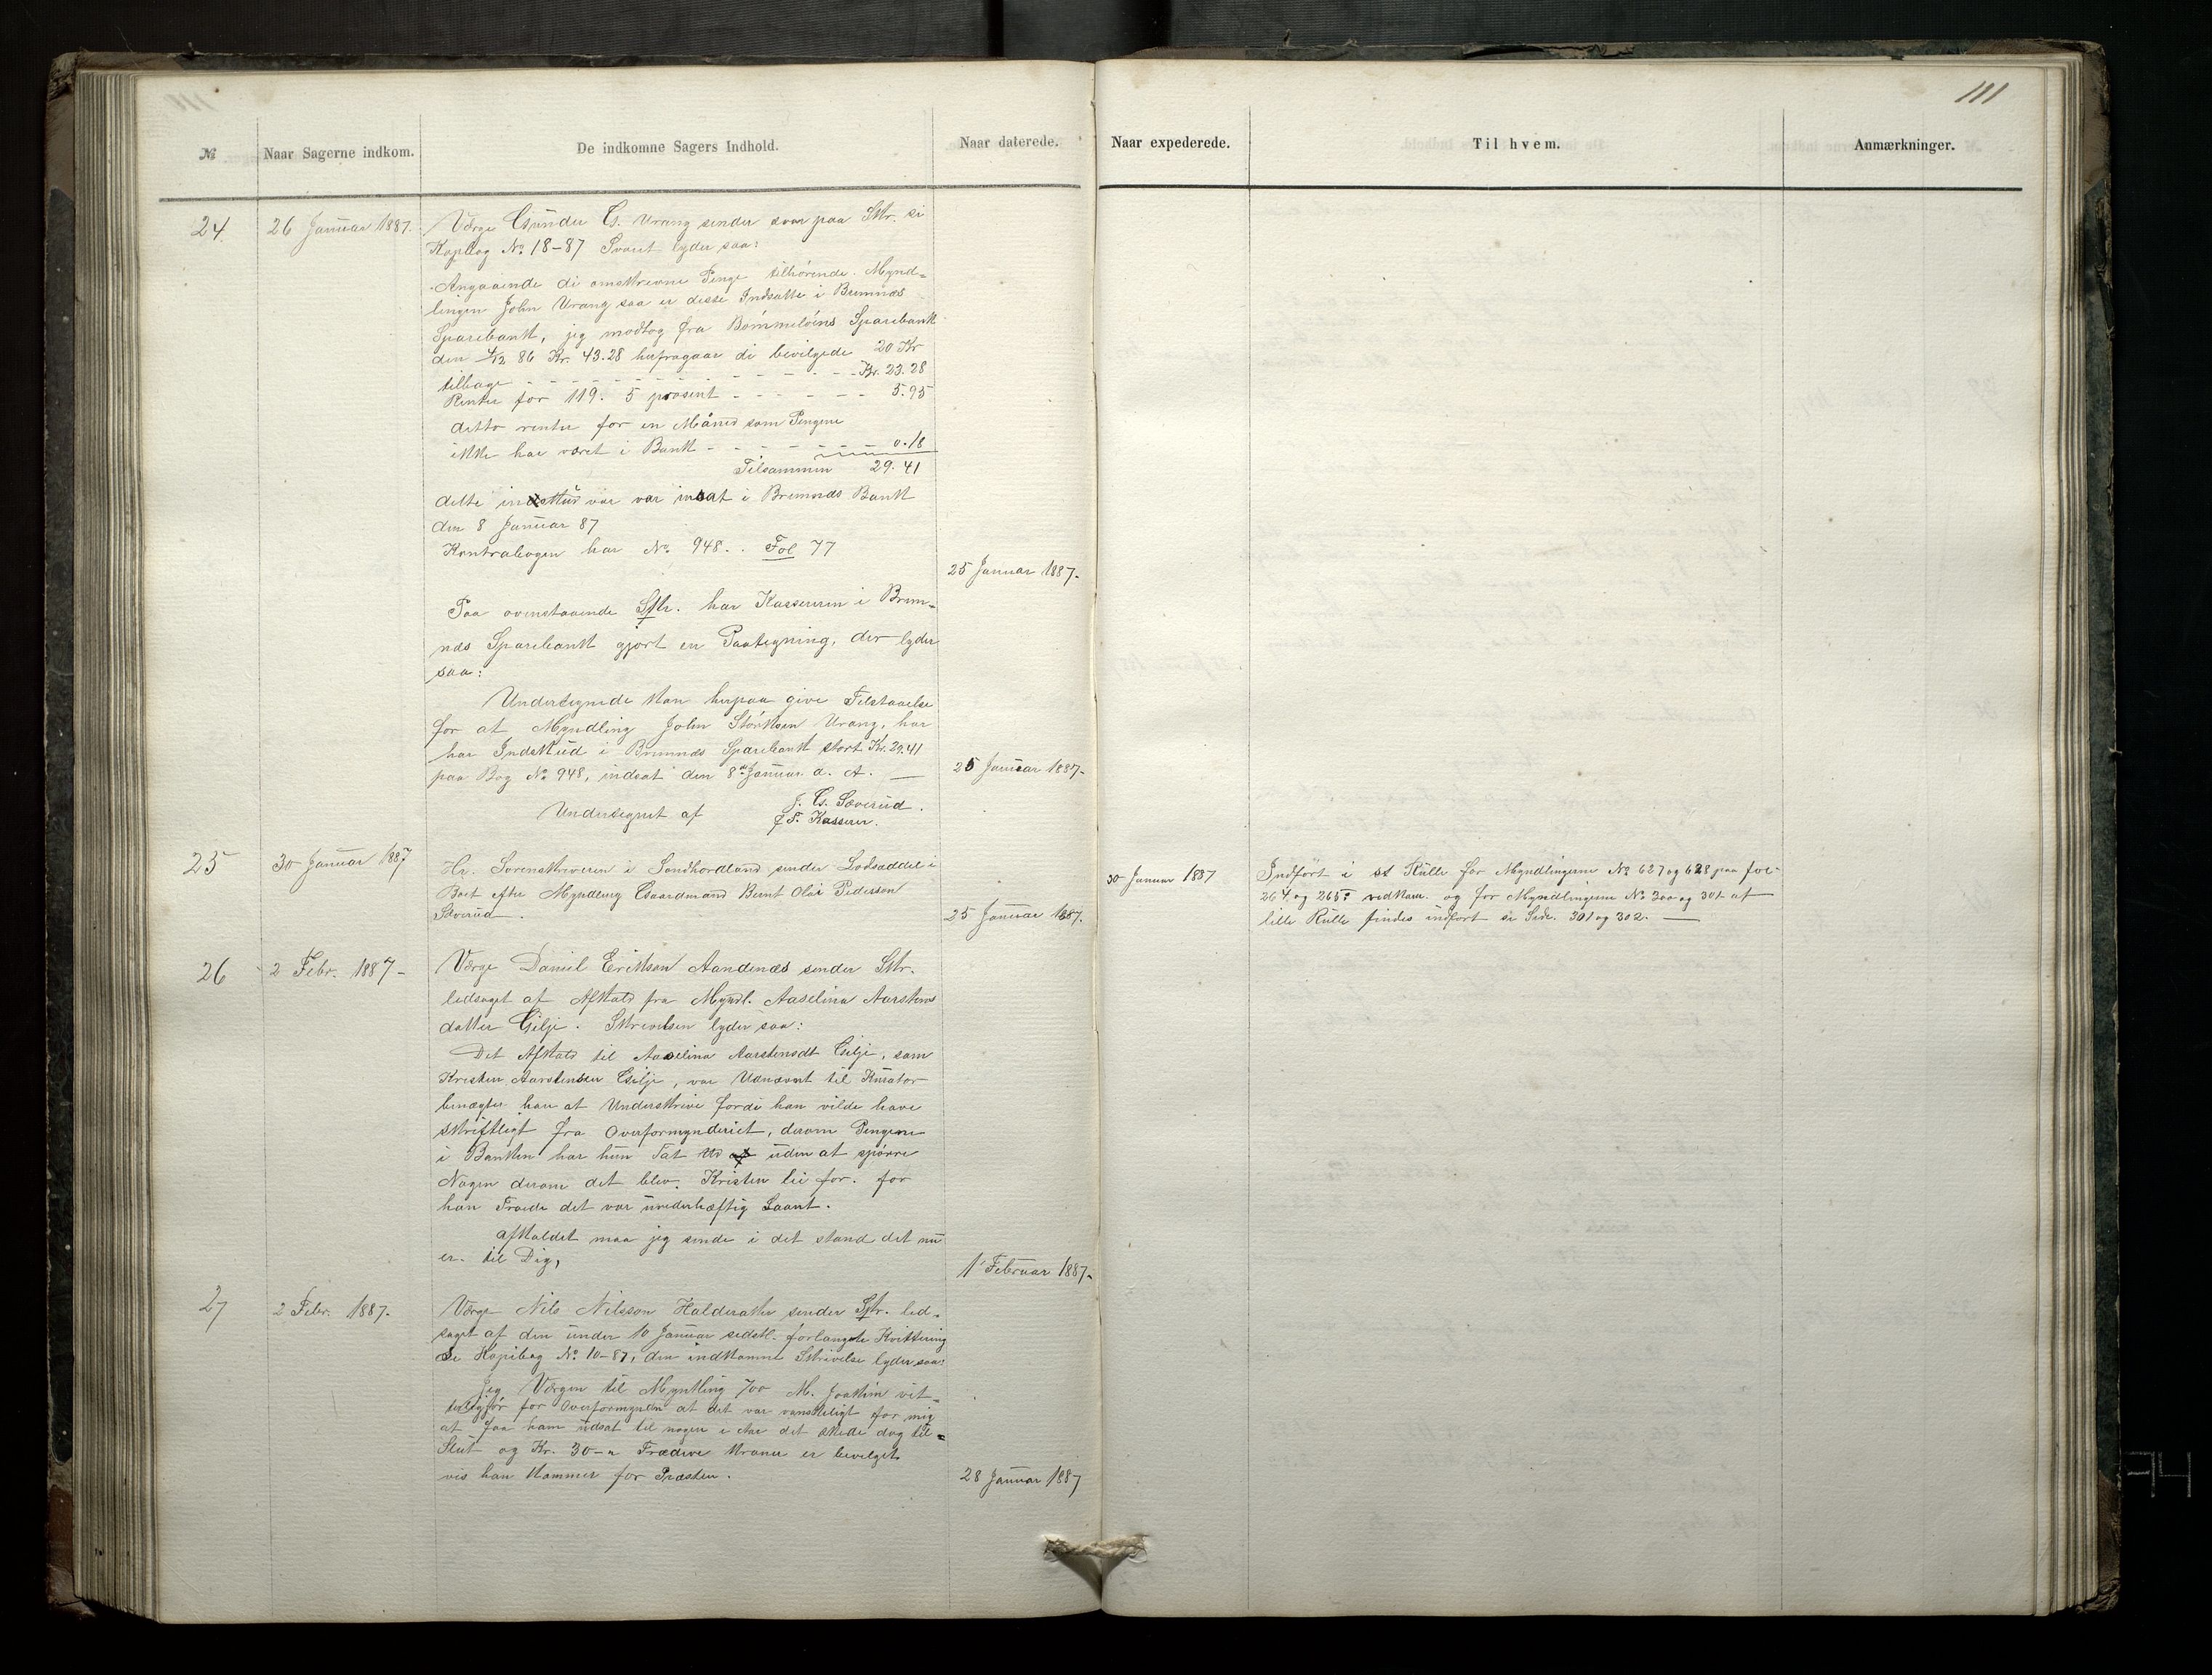 111
№ Naar Sagerne indkom. De indkomne Sagers Indhold. Naar daterede. Naar expederede. Til hvem. Anmærkninger.
24. 26 Januar 1887. Værge Gunder G. Urang sender svar paa Skr. se
Kopbog No. 18-87 Svaret lyder saa:
Angaaende di omskrevne Penge tilhörende Mynd-
lingen John Urang saa er disse Indsatte i Bremnæs
Sparebank, jeg modtog fra Bömmelöens Sparebank
den 4/12 86 Kr. 43.28 herfragaar di bevilgede 20 Kr
tilbage - - - - - - - - Kr. 23.28
Renter for 119. 5 prosent - - - - - - 5.95
ditto renter for en Måned som Pengene
ikke har været i Bank - - - - - - 0.18
Tilsammen 29.41
dette var insat i Bremnæs Bank
den 8 Januar 87
Kontrabogen har No 948. . Fol 77
25 Januar 1887.
Paa ovenstaaende Skr. har Kassereren i Brem-
næs Sparebank gjort en Paategning, der lyder
saa:
Undertegnede kan herpaa give Tilstaaelse
for at Myndling John Störksen Urang, har
har Indskud i Bremnæs Sparebank stort Kr. 29.41
paa Bog No 948, indsat den 8de Januar d. A. — 25 Januar 1887-
Undertegnet af J. G. Sæverud.
Kasserer.
25 30 Januar 1887 Hr. Sorenskriveren i Söndhordland sender Lodseddel i
Boet efter Myndling Gaardmand Bernt Olai Pederson
Sæverud. 25 Januar 1887.
30 Januar 1887 Indfört i st Rulle for Myndlingerne No 627 og 628 paa fol-
264 og 265 vedkom. og for Myndlingerne No 300 og 301 af
lille Rulle findes indfört se Side. 301 og 302. —
26 2 Febr. 1887- Værge Daniel Erikson Aandenæs sender Skr.
ledsaget af Afkald fra Myndl. Aaselina Aarstens
datter Gilje. Skrivelsen lyder saa:
Det Afkald til Aaselina Aarstensdt Gilje, som
Kresten Aarstensen Gilje, var Udnævnt til Kurator
benægter han at Underskrive fordi han vilde have
skriftligt fra Overformynderiet, derom Pengene
i Banken har hun Tat ud uden at spörre
Nogen derom det blev. Kristen lei for. for
han Troede det var urederhæftig Saant.
afkaldet maa jeg sende i det stand det nu
er. til Dig,
1 Februar 1887-
27 2 Febr. 1887. Værge Nils Nilsson Halderaker sender Skr. led-
saget af den under 10 Januar sidstl. forlangte Kvittering
se Kopibog No. 10-87, den indkomne Skrivelse lyder saa:
Jeg Værgen til Myntling 700 M. Joakim vit-
terligjör for Overformynden at det var vanskeligt for mig
at faa ham udsat til nogen i Aar det skede dog til-
Slut og Kr. 30- Tradive Kroner er bevelget
vis han kommer for Præsten. 28 Januar 1887